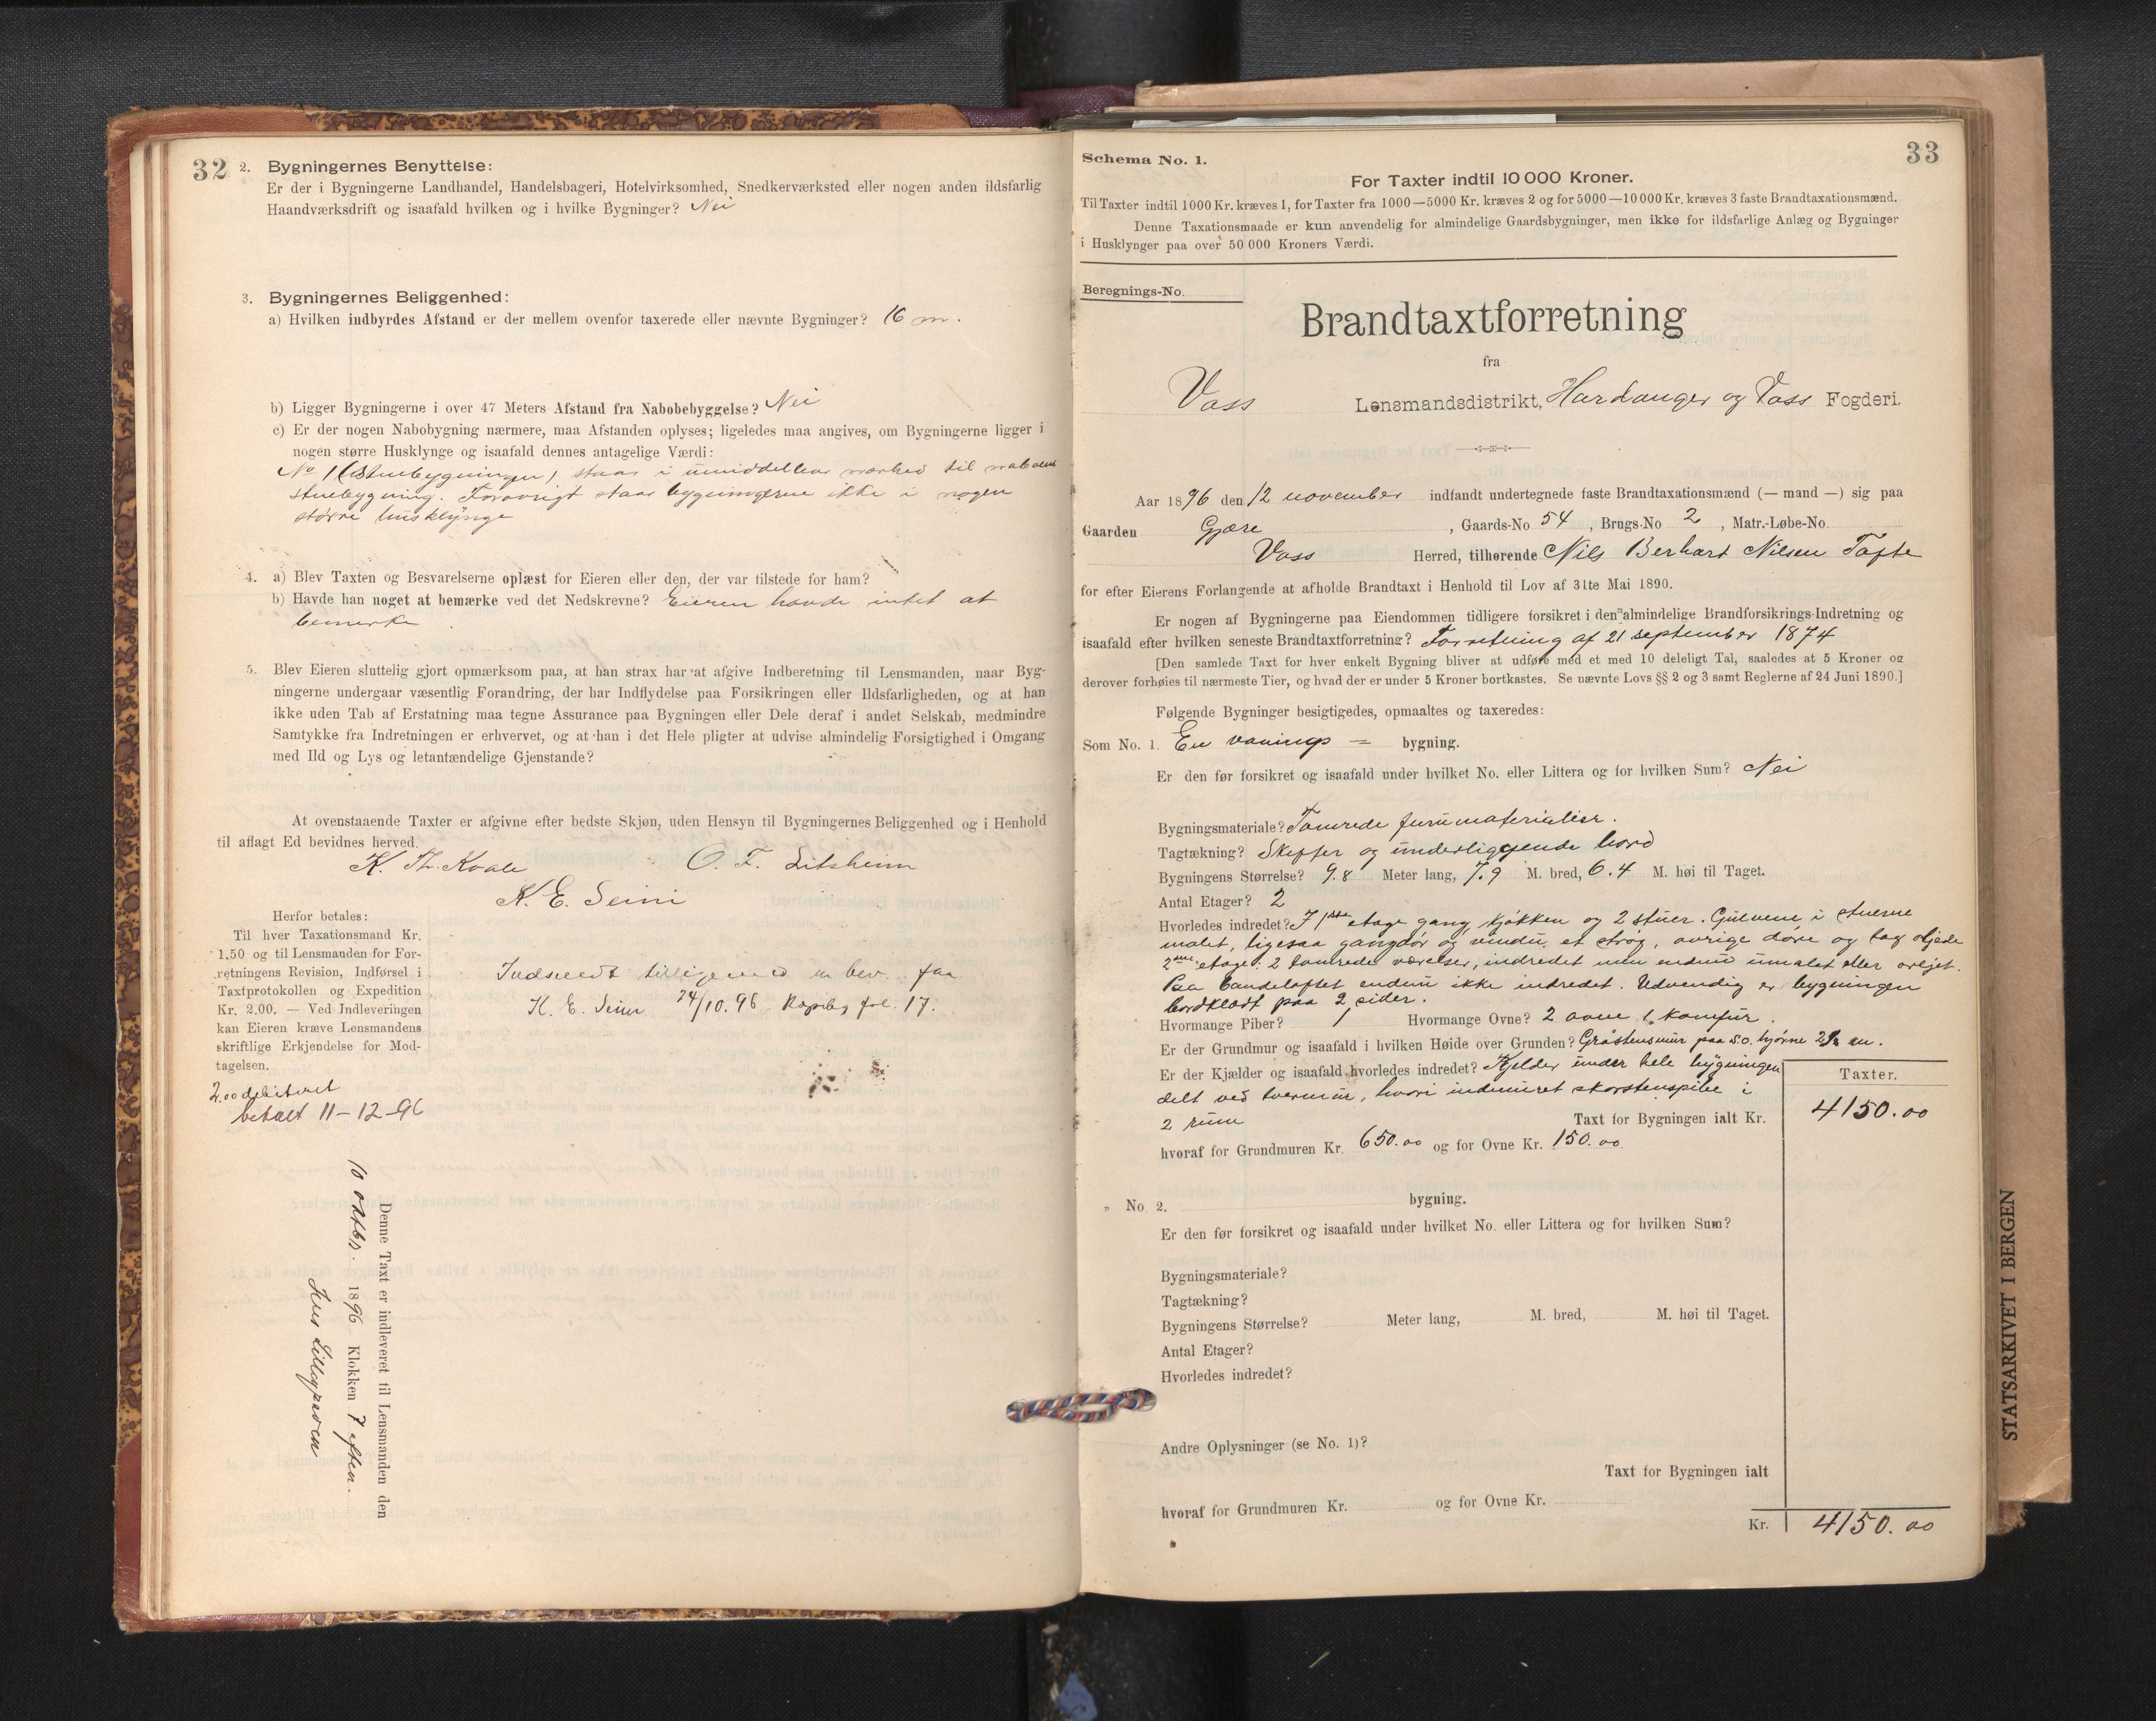 32
2. Bygningernes Benyttelse:
Er der i Bygningerne Landhandel, Handelsbageri, Hotelvirksomhed, Snedkerværksted eller nogen anden ildsfarlig
Haandværksdrift og isaafald hvilken og i hvilke Bygninger? Nei
3. Bygningernes Beliggenhed:
a) Hvilken indbyrdes Afstand er der mellem ovenfor taxerede eller nævnte Bygninger? 16 m.
b) Ligger Bygningerne i over 47 Meters Afstand fra Nabobebyggelse? Nei
c) Er der nogen Nabobygning nærmere, maa Afstanden oplyses; ligeledes maa angives, om Bygningerne ligger i
nogen større Husklynge og isaafald dennes antagelige Værdi:
No 1 (Stuebygningen) staar i umiddelbar nærhed til naboens
stuebygning. Forøvrigt staar bygningerne ikke i nogen
større husklynge
4. a) Blev Taxten og Besvarelserne oplæst for Eieren eller den, der var tilstede for ham?
b) Havde han noget at bemærke ved det Nedskrevne? Eieren havde intet at
bemerke
5. Blev Eieren sluttelig gjort opmærksom paa, at han strax har at afgive Indberetning til Lensmanden, naar Byg-
ningerne undergaar væsentlig Forandring, der har Indflydelse paa Forsikringen eller Ildsfarligheden, og at han
ikke uden Tab af Erstatning maa tegne Assurance paa Bygningen eller Dele deraf i andet Selskab, medmindre
Samtykke fra Indretningen er erhvervet, og at han i det Hele pligter at udvise almindelig Forsigtighed i Omgang
med Ild og Lys og letantændelige Gjenstande?
At ovenstaaende Taxter er afgivne efter bedste Skjøn, uden Hensyn til Bygningernes Beliggenhed og i Henhold
til aflagt Ed bevidnes herved.
K. Th. Kvale O. F. Litsheim
K. E. Seim
Herfor betales:
Til hver Taxationsmand Kr.
1.50 og til Lensmanden for For-
retningens Revision, Indførsel i
Taxtprotokollen og Expedition
Kr. 2.00. — Ved Indleveringen
kan Eieren kræve Lensmandens
skriftlige Erkjendelse for Mod-
tagelsen.
Indsendt tilligemed
K. E. Seim 24/10.96 Kopibog fol. 17.
2.00 debiteret
betalt 11-12-96
Denne Taxt er indleveret til Lensmanden den
10 oktbr. 1896 Klokken 7 aften.
33
Schema No. 1.
For Taxter indtil 10 000 Kroner.
Til Taxter indtil 1000 Kr. kræves 1, for Taxter fra 1000—5000 Kr. kræves 2 og for 5000—10000 Kr. kræves 3 faste Brandtaxationsmænd.
Denne Taxationsmaade er kun anvendelig for almindelige Gaardsbygninger, men ikke for ildsfarlige Anlæg og Bygninger
i Husklynger paa over 50 000 Kroners Værdi.
Beregnings-No.
Brandtaxtforretning
fra
Vass Lensmandsdistrikt, Hardanger og Vass Fogderi.
Aar 1896 den 12 november indfandt undertegnede faste Brandtaxationsmænd (— mand —) sig paa
Gaarden Gjære, Gaards-No 54, Brugs-No 2, Matr.-Løbe-No.
Vass Herred, tilhørende Nils Berhart Nilsen Tafte
for efter Eierens Forlangende at afholde Brandtaxt i Henhold til Lov af 31te Mai 1890.
Er nogen af Bygningerne paa Eiendommen tidligere forsikret i den almindelige Brandforsikrings-Indretning og
isaafald efter hvilken seneste Brandtaxtforretning? Forretning af 21 september 1874
[Den samlede Taxt for hver enkelt Bygning bliver at udføre med et med 10 deleligt Tal, saaledes at 5 Kroner og
derover forhøies til nærmeste Tier, og hvad der er under 5 Kroner bortkastes. Se nævnte Lovs §§ 2 og 3 samt Reglerne af 24 Juni 1890.]
Følgende Bygninger besigtigedes, opmaaltes og taxeredes:
Som No. 1. En vanings = bygning.
Er den før forsikret og isaafald under hvilket No. eller Littera og for hvilken Sum? Nei
Bygningsmateriale? Tømrede furumaterialier.
Tagtækning? Skeffer og underliggende bord
Bygningens Størrelse? 9.8 Meter lang, 7.9 M. bred, 6.4 M. høi til Taget.
Antal Etager? 2
Hvorledes indredet? I 1ste etage gang, kjøkken og 2 stuer. Gulvene i stuerne
malet, ligesaa gangdør og vindu, et strøg, øvrige døre og tag oljede
2den etage: 2 tømrede værelser, indredet men endnu umalet eller oljet.
Paa bandeloftet endnu ikke indredet. Udvendig er bygningen
bordklædt paa 2 sider.
Hvormange Piber? 1 Hvormange Ovne? 2 ovne 1 komfur.
Er der Grundmur og isaafald i hvilken Høide over Grunden? Gråstensmur paa s.o. hjørne m.
Er der Kjælder og isaafald hvorledes indredet? Kjelder under hele bygningen
delt ved tvermur, hvori indmuret skorstenspibe i
2 rum
Taxter.
Taxt for Bygningen ialt Kr. 4150.00
hvoraf for Grundmuren Kr. 650.00 og for Ovne Kr. 150.00
" No. 2. bygning.
Er den før forsikret og isaafald under hvilket No. eller Littera og for hvilken Sum?
Bygningsmateriale?
Tagtækning?
Bygningens Størrelse? Meter lang, M. bred, M. høi til Taget.
Antal Etager?
Hvorledes indredet?
Andre Oplysninger (se No. 1)?
Taxt for Bygningen ialt
hvoraf for Grundmuren Kr. og for Ovne Kr.
Kr. 4150.00
STATSARKIVET I BERGEN